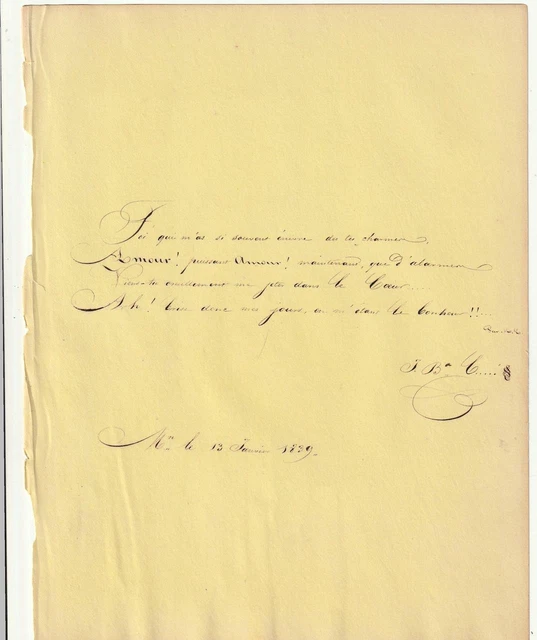 Toi que m'as si souvent énivré de tes charmes,
Amour! puissant Amour! maintenant, que d'alarmes
Viens-tu me jeter dans le Cœur....
Ah! donc mes jours, ou m' dans le bonheur!!...
J. Bte C....i
Mn le 13 Janvier 1839.